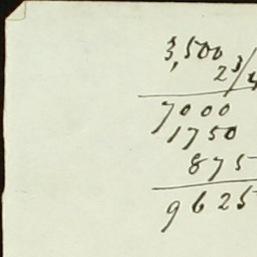 3,500
2 3/4
7000
1750
875
9625